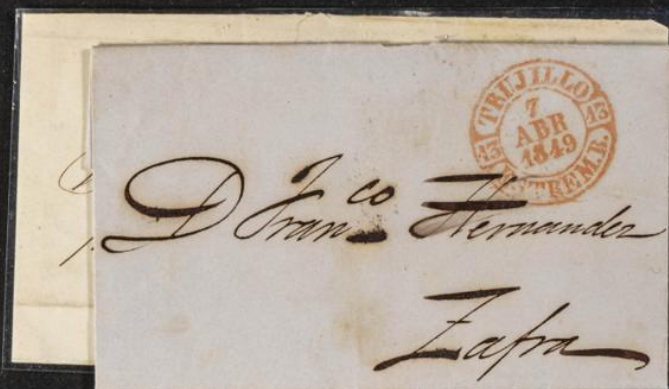 TRUJILLO
7
ABR
1849
13
13
ESTREM.R.
D Fran.co Hernandez
Zafra